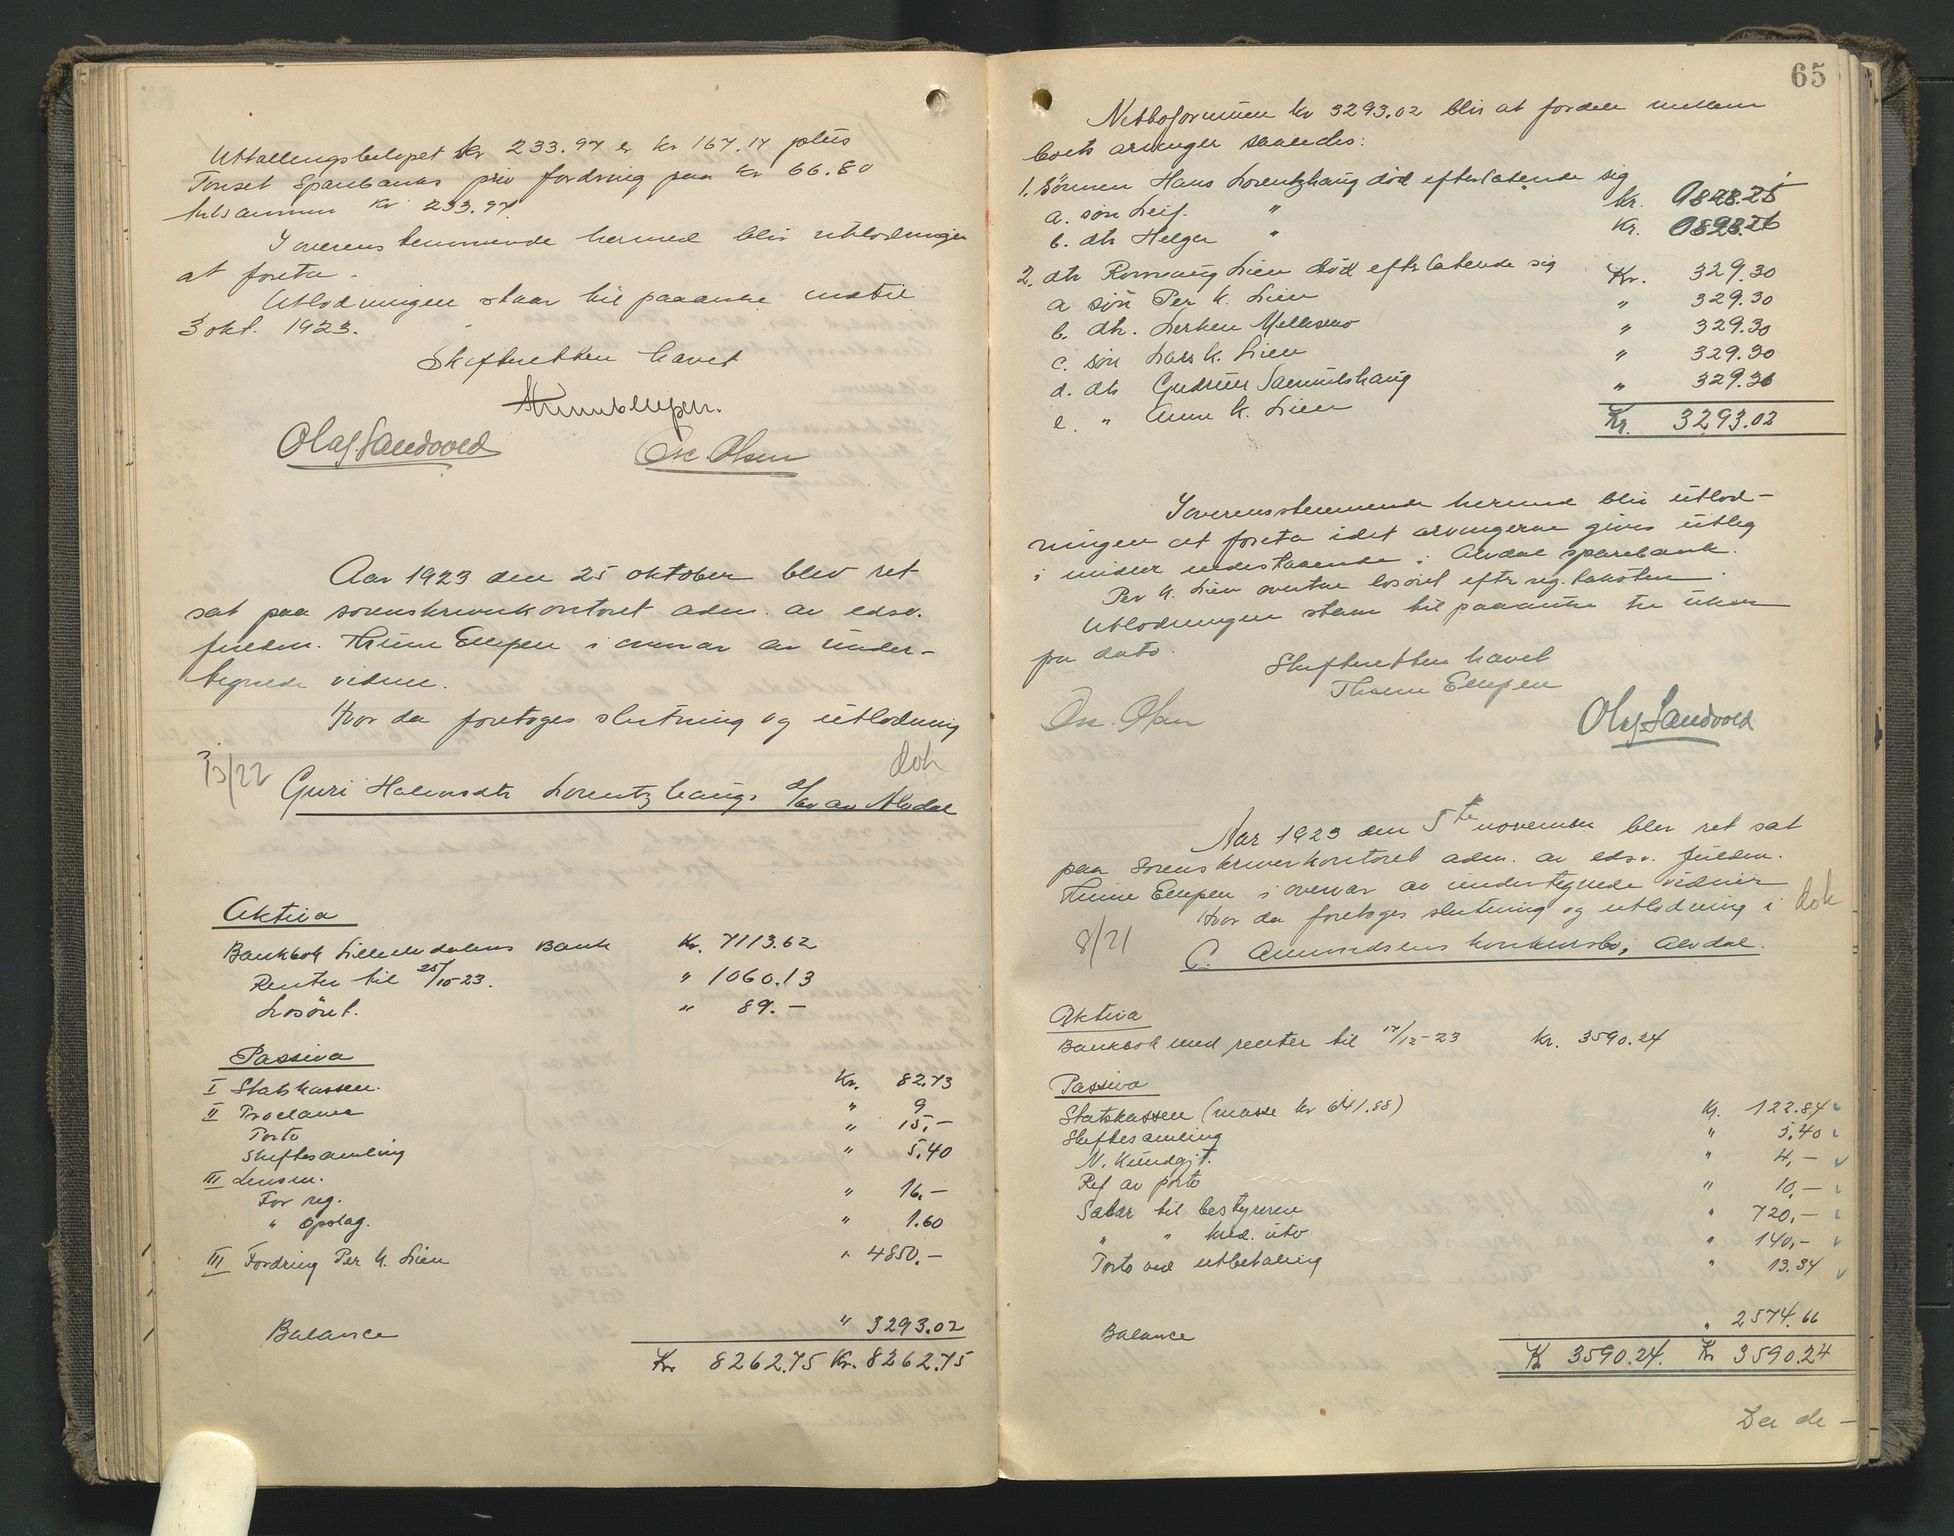 Uttallingsbelöpet kr 233.97 er kr 167.17 plus
Tönset Sparebanks priv fordring paa kr 66.80
tilsammen kr 233.97.
I overensstemmende hermed blir utlodningen
at foreta.
Utlodningen staar til paaanke indtil
3 okt. 1923.
Skifteretten hævet
Olaf Sandvold Osc. Olsen
Aar 1923 den 25 oktober blev ret
sat paa sorenskriverkontoret adm. av edsv.
fuldm. Thune Ellefsen i overvær av under-
tegnede vidner.
Hvor da foretoges slutning og utlodning
13/22 dok
Guri Halvorsdtr Lorentzhaugs d/bo av Alvdal
Aktiva
Bankbok Lilleelvdalens Bank Kr. 7113.62
Renter til 25/10-23. " 1060.13
Losöret. " 89.-
Passiva
I Statskassen. Kr. 82.73
II Proclama " 9
Porto " 15,-
Skiftesamling " 5.40
III Lensm.
For reg. " 16,-
" Opslag. " 1.60
III Fordring Per K. Lien " 4850.-
Balance " 3293.02
Kr 8262.75 Kr. 8262.75
65
Nettoformuen kr 3293.02 blir at fordele mellem
boets arvinger saaledes:
1. Sönnen Hans Lorentzhaug död efterlatende sig
a. sön Leif. " kr. 0823.25
b. dtr Helga " Kr. 0823.26
2. dtr Rønnaug Lien död eftrlatende sig Kr. 329.30
a sön Per K. Lien " 329.30
b. dtr. " 329.30
c. sön Lars K. Lien " 329.30
d. dtr Gudrun Samuelshaug " 329.36
e. " Anne K. Lien Kr. 3293.02
I overensstemmende hermed blir utlod-
ningen at foreta idet arvingerne gives utlæg
i midler indestaaende i Alvdal sparebank.
Per K. Lien overtar losöret eftr reg. taksten.
Utlodningen staar til paaanke tre uker
fra dato.
Skifteretten hævet
Thune Ellefsen
Osc. Olsen Olaf Sandvold
Aar 1923 den 5te november blev ret sat
paa Sorenskriverkontoret adm. av edsv. fuldm.
Thune Ellefsen i overvær av undertegnede vidner
Hvor da foretoges slutning og utlodning i dok
8/21 C. Amundsens konkursbo, Alvdal.
Aktiva
Bankbok med renter til 17/12-23 kr. 3590.24
Passiva
Statskassen (masse kr 641.88) Kr. 122.84
Skiftesamling " 5.40
N. Kundgj. " 4,-
Ref av porto " 10,-
Salær til bestyreren " 720,-
" " kred. utv " 140,-
Porto ved utbetaling " 13.34
Balance " 2574.66
K 3590.24. Kr 3590.24
Der de-